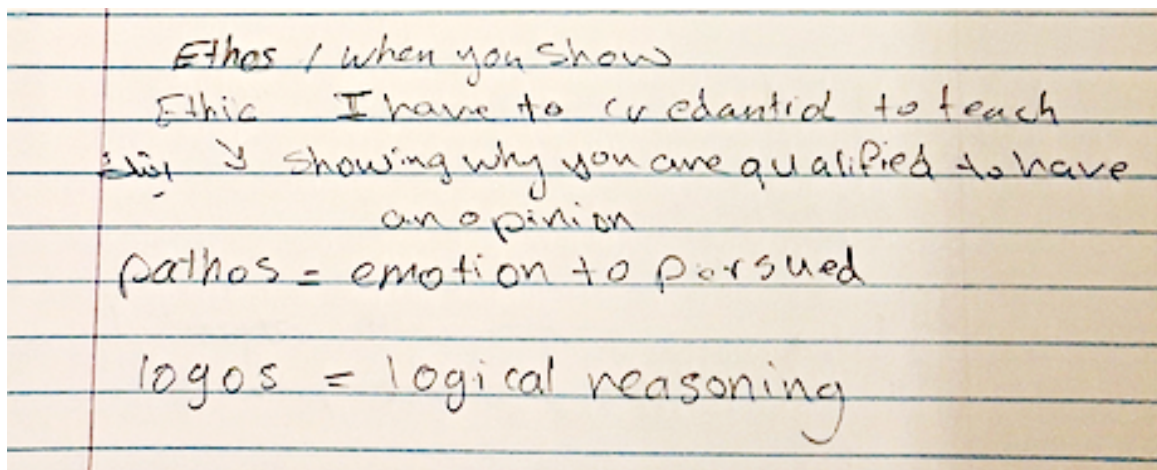 Ethos / when you show
Ethic I have to credantial to teach
↘ showing why you are qualified to have
an opinion
pathos = emotion to persued
logos = logical reasoning